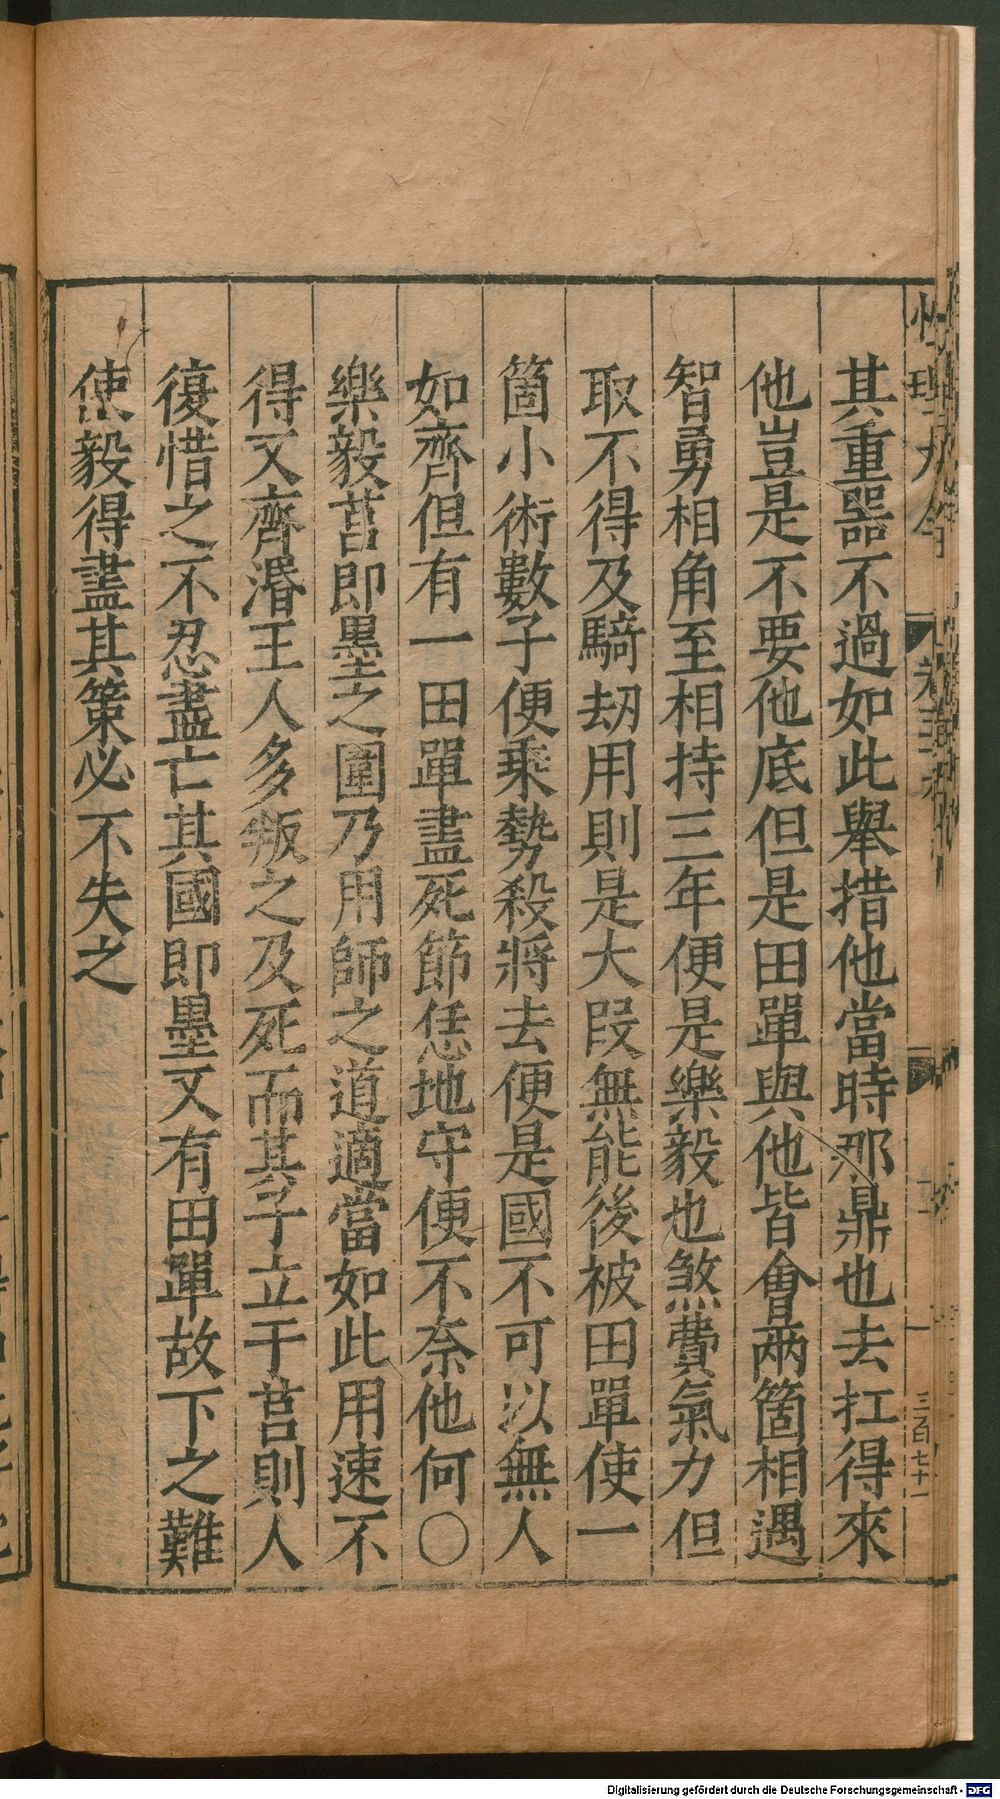 其重器不過如此舉措他當時那鼎也去扛得來
他豈是不要他底但是田單與他皆會兩箇相遇
智勇相角至相持三年便是樂毅也煞費氣力但
取不得及騎刼用則是大段無能後被田單使一
箇小術數子便乘勢殺將去便是國不可以無人
如齊但有一田單盡死節恁地守便不奈他何〇
樂毅莒即墨之圍乃用師之道適當如此用速不
得又齊湣王人多叛之及死而其子立于莒則人
復惜之不忍盡亡其國即墨又有田單故下之難
使毅得盡其策必不失之
性理大全
三百七十一
Digitalisierung gefördert durch die Deutsche Forschungsgemeinschaft - DFG